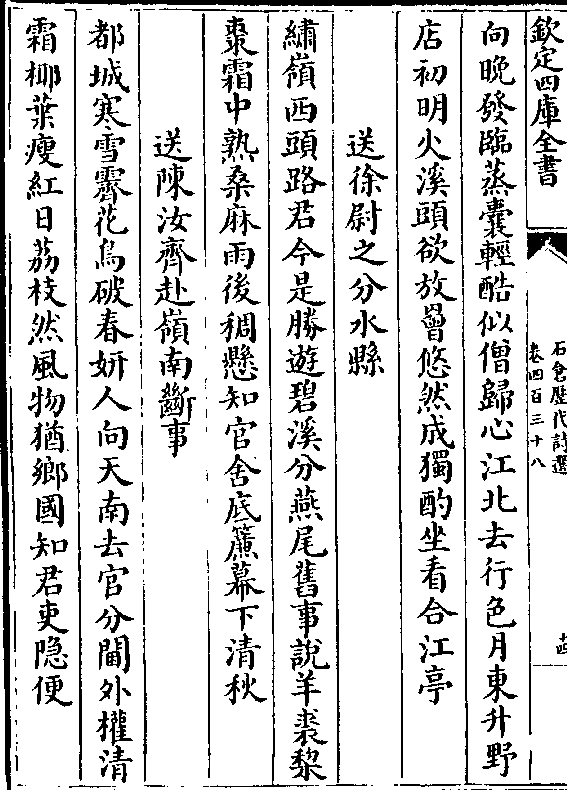 欽定四庫全書
石倉歷代詩選
卷四百三十八
向晚發臨蒸囊輕酷似僧歸心江北去行色月東升野
店初明火溪頭欲放罾悠然成獨酌坐看合江亭
送徐尉之分水縣
繡嶺西頭路君今是勝遊碧溪分燕尾舊事說羊裘黎
棗霜中熟桑麻雨後稠懸知官舍底簾幕下清秋
送陳汝齊赴嶺南斷事
都城寒雪霽花鳥破春妍人向天南去官分閫外權清
霜椰葉瘦紅日荔枝然風物猶鄉國知君吏隐便